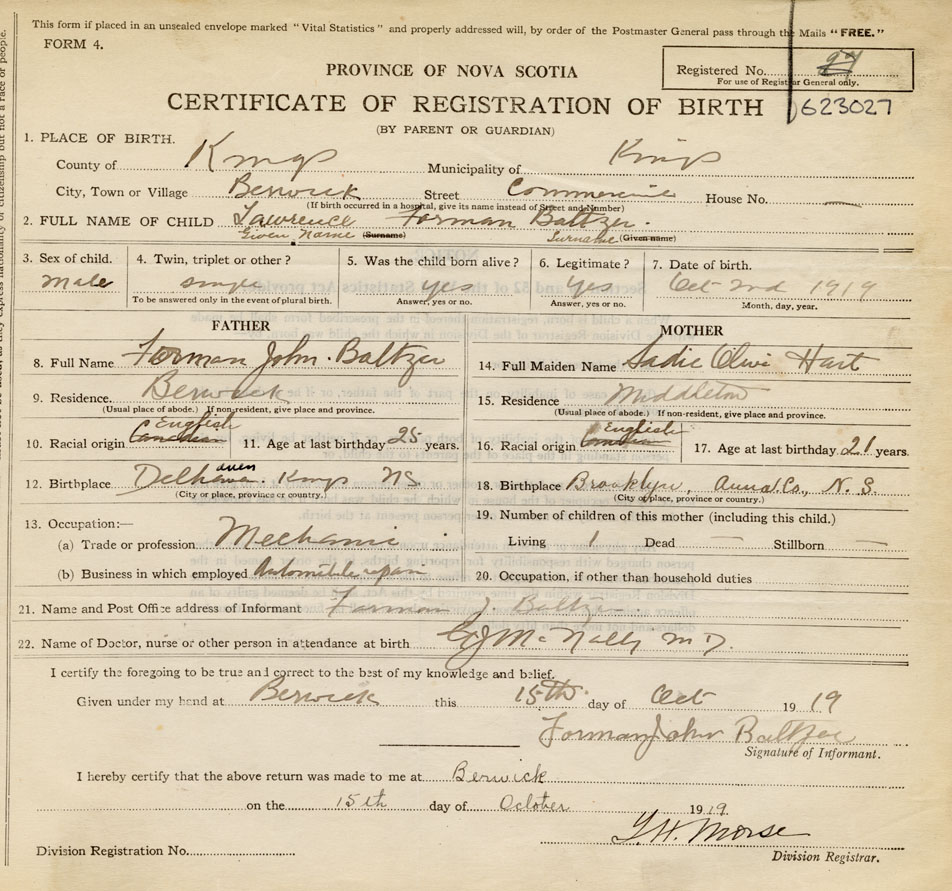 This form if placed in an unsealed envelope marked “Vital Statistics” and properly addressed will, by order of the Postmaster General pass through the Mails “FREE.”
FORM 4.
PROVINCE OF NOVA SCOTIA
Registered No.
For use of Registrar General only.
CERTIFICATE OF REGISTRATION OF BIRTH
623027
(BY PARENT OR GUARDIAN)
1. PLACE OF BIRTH.
County of Kings Municipality of Kings
City, Town or Village Berwick Street Commercial House No. —
(If birth occurred in a hospital, give its name instead of Street and Number)
2. FULL NAME OF CHILD Lawrence Forman Baltzer.
Given Name (Surname) Surname (Given name)
3. Sex of child. 4. Twin, triplet or other? 5. Was the child born alive? 6. Legitimate? 7. Date of birth.
Male single yes Yes Oct 2nd 1919
To be answered only in the event of plural birth. Answer, yes or no. Answer, yes or no. Month, day, year.
FATHER
8. Full Name Forman John Baltzer
9. Residence. Berwick
(Usual place of abode.) If non-resident, give place and province.
10. Racial origin Canadian English 11. Age at last birthday 25 years.
12. Birthplace Delhaven. Kings NS
(City or place, province or country.)
13. Occupation:—
(a) Trade or profession Mechanic
(b) Business in which employed Automobile repair
MOTHER
14. Full Maiden Name Sadie Olive Hart
15. Residence Middleton
(Usual place of abode.) If non-resident, give place and province.
16. Racial origin Canadian English 17. Age at last birthday 21 years.
18. Birthplace Brooklyn, Anna. Co., N. S.
(City or place, province or country.)
19. Number of children of this mother (including this child.)
Living 1 Dead — Stillborn —
20. Occupation, if other than household duties
21. Name and Post Office address of Informant Forman J Baltzer
22. Name of Doctor, nurse or other person in attendance at birth McNally MD.
I certify the foregoing to be true and correct to the best of my knowledge and belief.
Given under my hand at Berwick this 15th day of Oct 1919
Forman John Baltzer
Signature of Informant.
I hereby certify that the above return was made to me at Berwick
on the 15th day of October 1919.
Morse
Division Registration No.
Division Registrar.